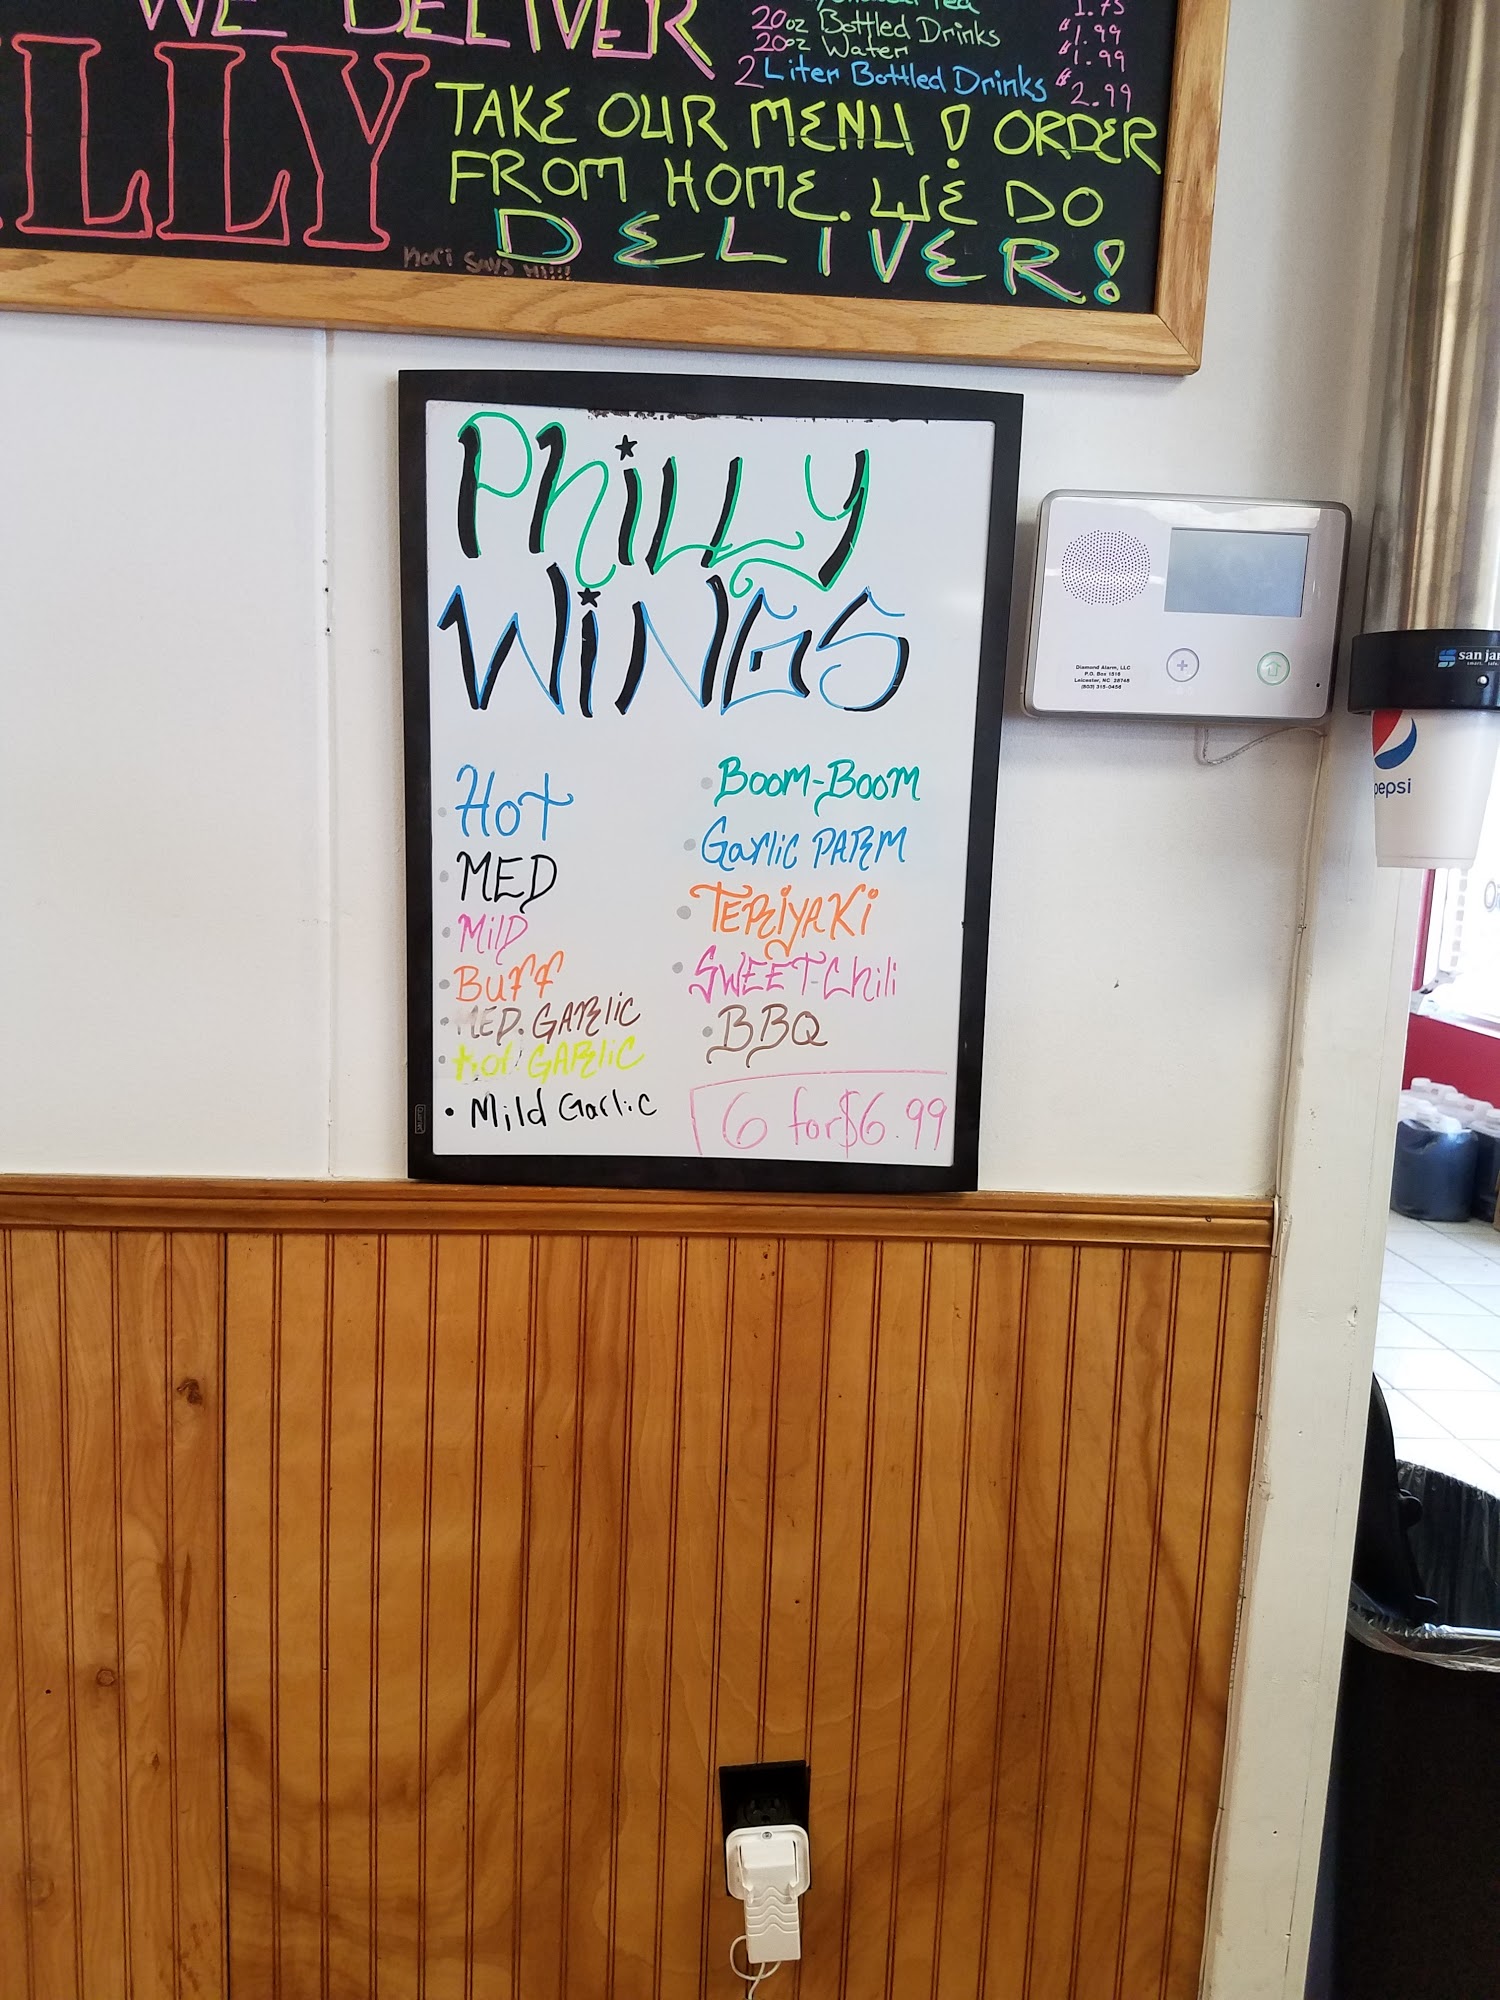 WE DELIVER
LLY
Tea 1.75
20oz Bottled Drinks $1.99
20oz Water $1.99
2 Liter Bottled Drinks $2.99
TAKE OUR MENU! ORDER
FROM HOME. WE DO
DELIVER!
Mori says HI!!!!
PhiLLY
WiNGS
Hot
MED
Mild
Buff
MED. GARliC
Hot GARliC
Mild Garlic
Boom-Boom
Garlic PARM
TERiYAKi
SWEET-Chili
BBQ
6 for $6.99
Diamond Alarm, LLC
P.O. Box 1516
Leicester, NC 28748
(803) 315-0456
san jam
pepsi